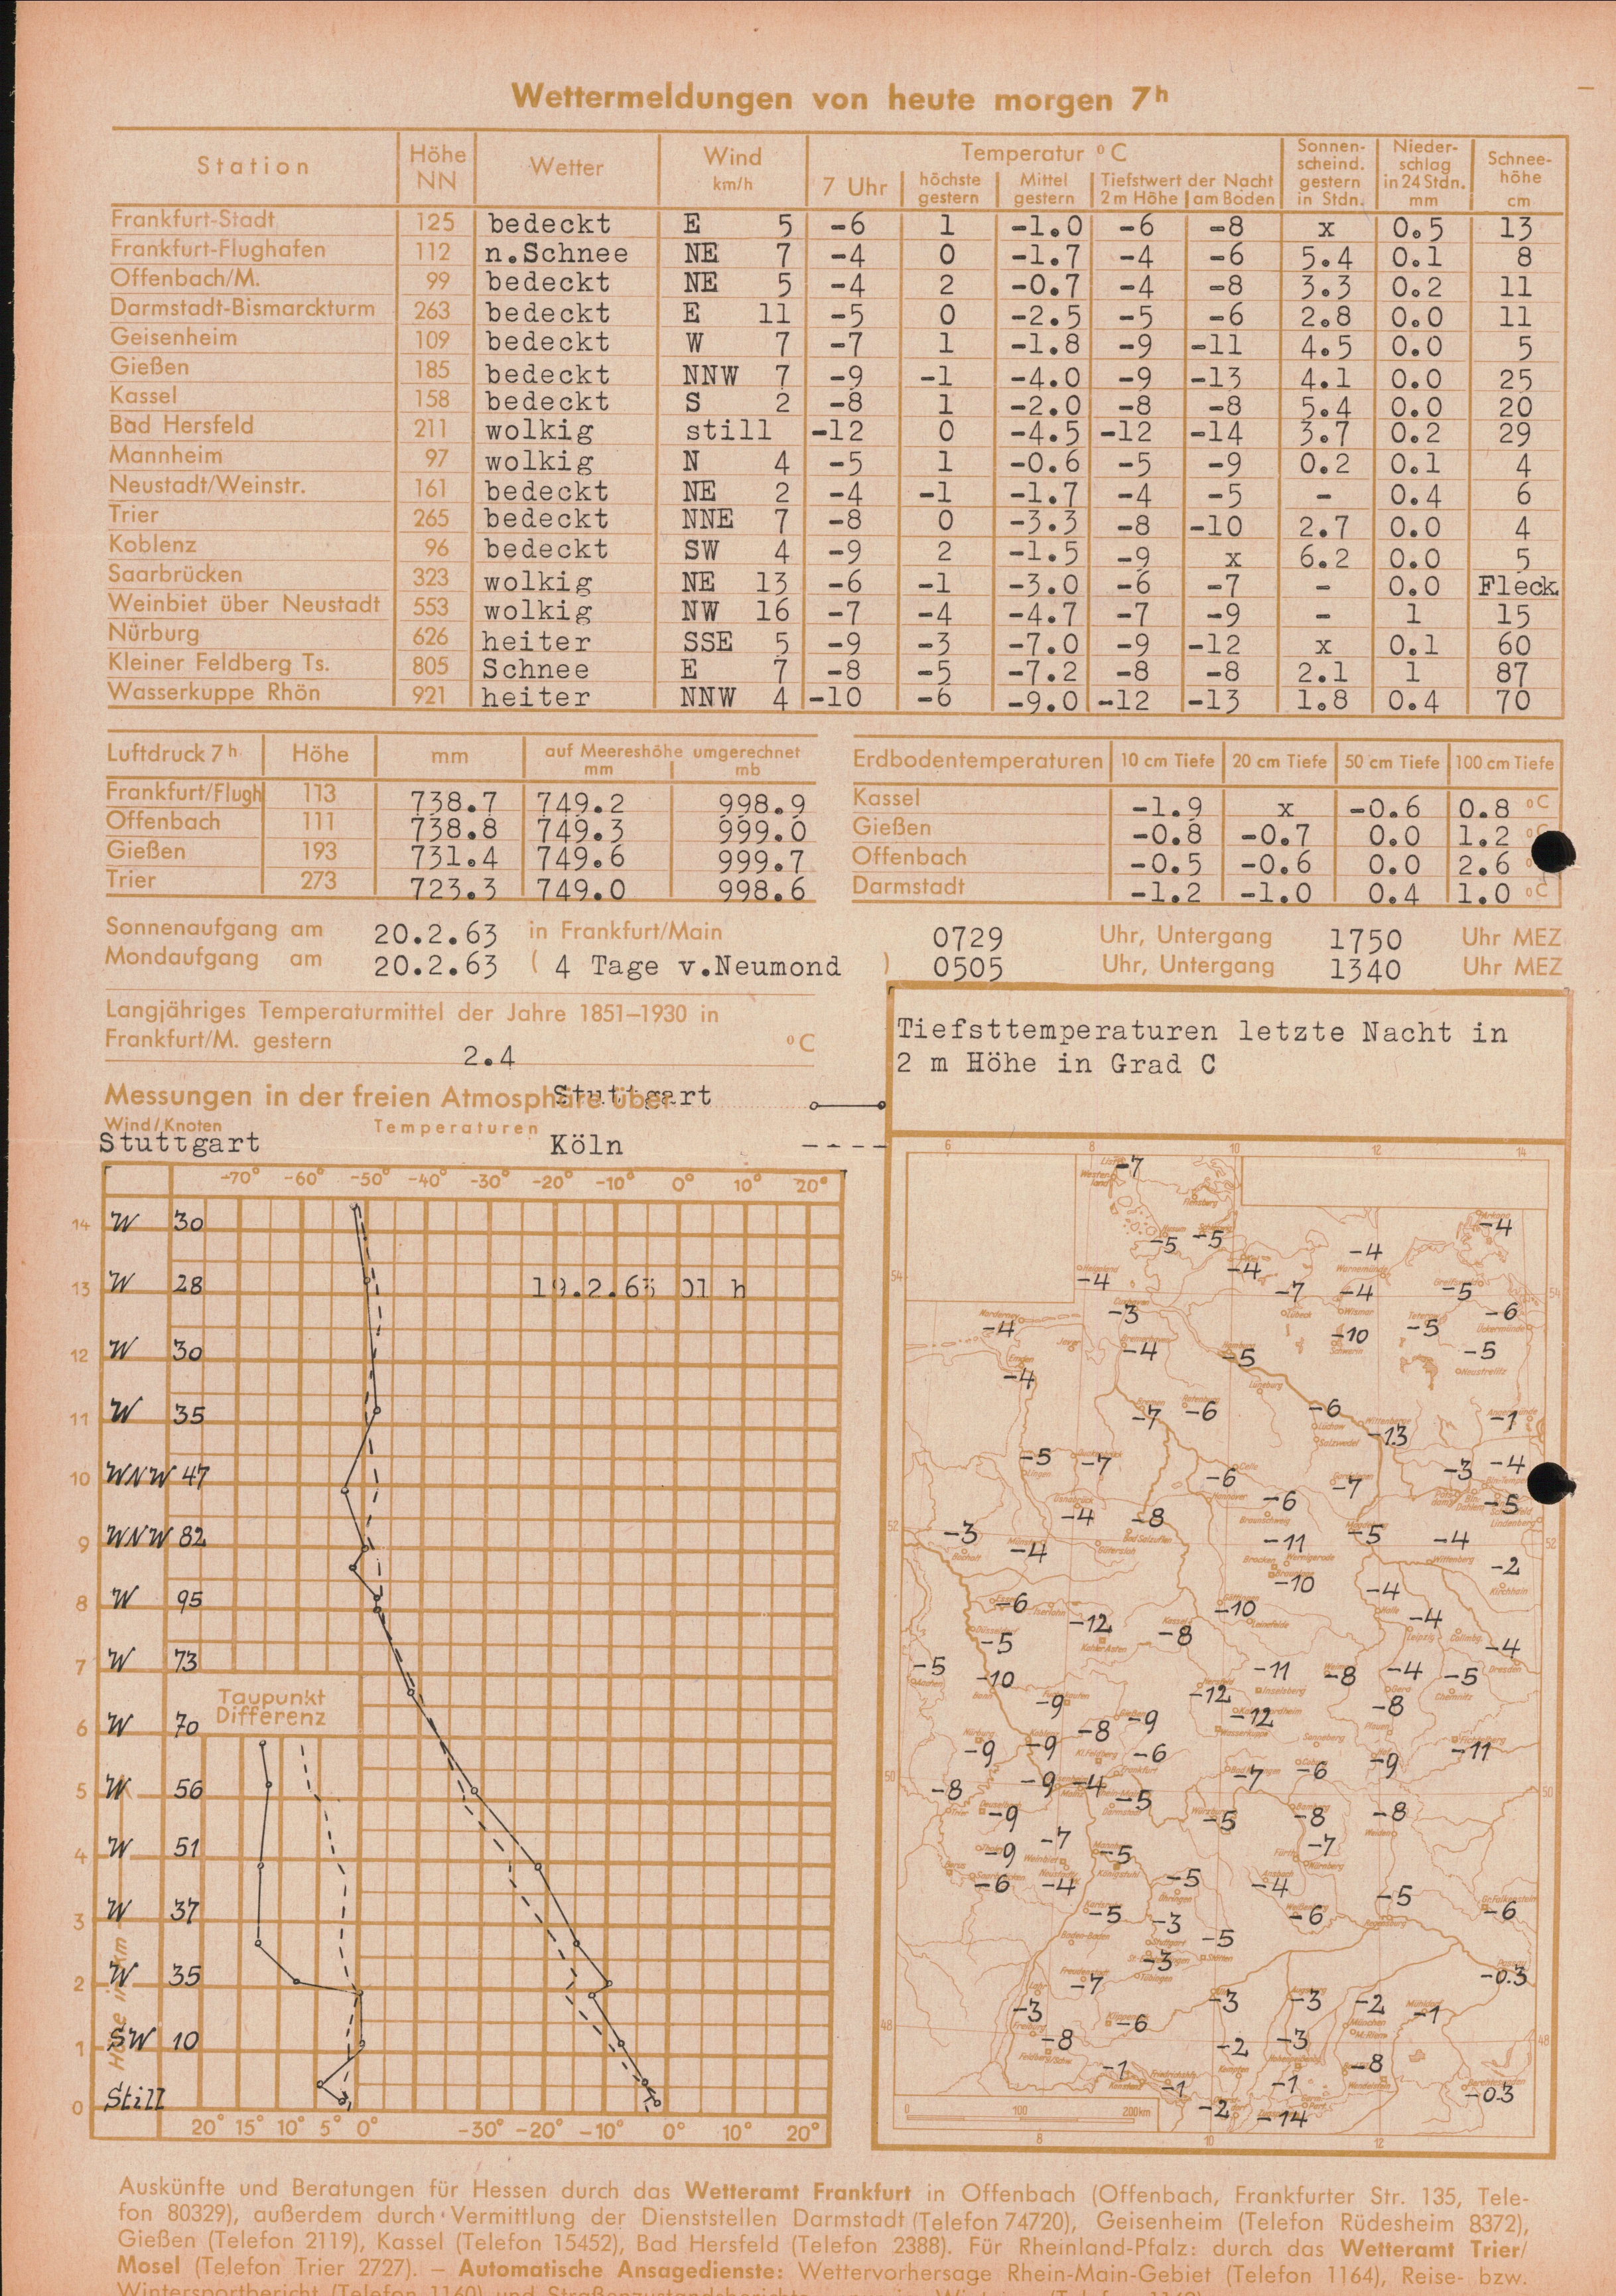 Wettermeldungen von heute morgen 7h
Station Höhe NN Wetter Wind km/h Temperatur °C Sonnenscheind. gestern in Stdn. Niederschlag in 24 Stdn. mm Schneehöhe cm
7 Uhr höchste gestern Mittel gestern Tiefstwert der Nacht 2 m Höhe am Boden
Frankfurt-Stadt 125 bedeckt E 5 -6 1 -1.0 -6 -8 x 0.5 13
Frankfurt-Flughafen 112 n.Schnee NE 7 -4 0 -1.7 -4 -6 5.4 0.1 8
Offenbach/M. 99 bedeckt NE 5 -4 2 -0.7 -4 -8 3.3 0.2 11
Darmstadt-Bismarckturm 263 bedeckt E 11 -5 0 -2.5 -5 -6 2.8 0.0 11
Geisenheim 109 bedeckt W 7 -7 1 -1.8 -9 -11 4.5 0.0 5
Gießen 185 bedeckt NNW 7 -9 -1 -4.0 -9 -13 4.1 0.0 25
Kassel 158 bedeckt S 2 -8 1 -2.0 -8 -8 5.4 0.0 20
Bad Hersfeld 211 wolkig still -12 0 -4.5 -12 -14 3.7 0.2 29
Mannheim 97 wolkig N 4 -5 1 -0.6 -5 -9 0.2 0.1 4
Neustadt/Weinstr. 161 bedeckt NE 2 -4 -1 -1.7 -4 -5 - 0.4 6
Trier 265 bedeckt NNE 7 -8 0 -3.3 -8 -10 2.7 0.0 4
Koblenz 96 bedeckt SW 4 -9 2 -1.5 -9 x 6.2 0.0 5
Saarbrücken 323 wolkig NE 13 -6 -1 -3.0 -6 -7 - 0.0 Fleck
Weinbiet über Neustadt 553 wolkig NW 16 -7 -4 -4.7 -7 -9 - 1 15
Nürburg 626 heiter SSE 5 -9 -3 -7.0 -9 -12 x 0.1 60
Kleiner Feldberg Ts. 805 Schnee E 7 -8 -5 -7.2 -8 -8 2.1 1 87
Wasserkuppe Rhön 921 heiter NNW 4 -10 -6 -9.0 -12 -13 1.8 0.4 70
Luftdruck 7h Höhe mm auf Meereshöhe umgerechnet mm mb
Frankfurt/Flugh 113 738.7 749.2 998.9
Offenbach 111 738.8 749.3 999.0
Gießen 193 731.4 749.6 999.7
Trier 273 723.3 749.0 998.6
Erdbodentemperaturen 10 cm Tiefe 20 cm Tiefe 50 cm Tiefe 100 cm Tiefe
Kassel -1.9 x -0.6 0.8 °C
Gießen -0.8 -0.7 0.0 1.2 °C
Offenbach -0.5 -0.6 0.0 2.6
Darmstadt -1.2 -1.0 0.4 1.0 °C
Sonnenaufgang am 20.2.63 in Frankfurt/Main 0729 Uhr, Untergang 1750 Uhr MEZ
Mondaufgang am 20.2.63 ( 4 Tage v.Neumond ) 0505 Uhr, Untergang 1340 Uhr MEZ
Langjähriges Temperaturmittel der Jahre 1851–1930 in
Frankfurt/M. gestern 2.4 °C
Messungen in der freien Atmosphäre über Stuttgart
Wind/Knoten Temperaturen
Stuttgart Köln
-70° -60° -50° -40° -30° -20° -10° 0° 10° 20°
14 W 30
13 W 28 19.2.63 01 h
12 W 30
11 W 35
10 WNW 47
9 WNW 82
8 W 95
7 W 73
Taupunkt
Differenz
6 W 70
5 W 56
4 W 51
3 W 37
2 W 35
1 SW 10
0 Still
Höhe in km
20° 15° 10° 5° 0° -30° -20° -10° 0° 10° 20°
Tiefsttemperaturen letzte Nacht in
2 m Höhe in Grad C
6 8 10 12 14
-7
-4
-5 -5 -4
-4 -4 -7 -4 -5
-3 -6
-4 -10 -5
-4 -5 -5
-4
-7 -6 -6 -1
-13
-5 -7 -6 -7 -3 -4
-4 -8 -6 -5
-3 -4 -11 -5 -4
-10 -2
-6 -10 -4
-12 -8 -4
-5 -4
-5 -10 -11 -8 -4 -5
-9 -12
-8 -9 -12 -8
-9 -9 -6 -11
-9
-8 -9 -4 -5 -7 -6
-9 -5 -8 -8
-9 -7 -5 -7
-6 -4 -5 -4 -5
-5 -3 -6 -6
-3 -5
-7 -0.3
-3 -6 -3 -3 -2 -1
-8 -2 -3
-1 -8
-1 -1 -0.3
-2 -14
0 100 200km
8 10 12
Auskünfte und Beratungen für Hessen durch das Wetteramt Frankfurt in Offenbach (Offenbach, Frankfurter Str. 135, Tele-
fon 80329), außerdem durch Vermittlung der Dienststellen Darmstadt (Telefon 74720), Geisenheim (Telefon Rüdesheim 8372),
Gießen (Telefon 2119), Kassel (Telefon 15452), Bad Hersfeld (Telefon 2388). Für Rheinland-Pfalz: durch das Wetteramt Trier/
Mosel (Telefon Trier 2727). — Automatische Ansagedienste: Wettervorhersage Rhein-Main-Gebiet (Telefon 1164), Reise- bzw.